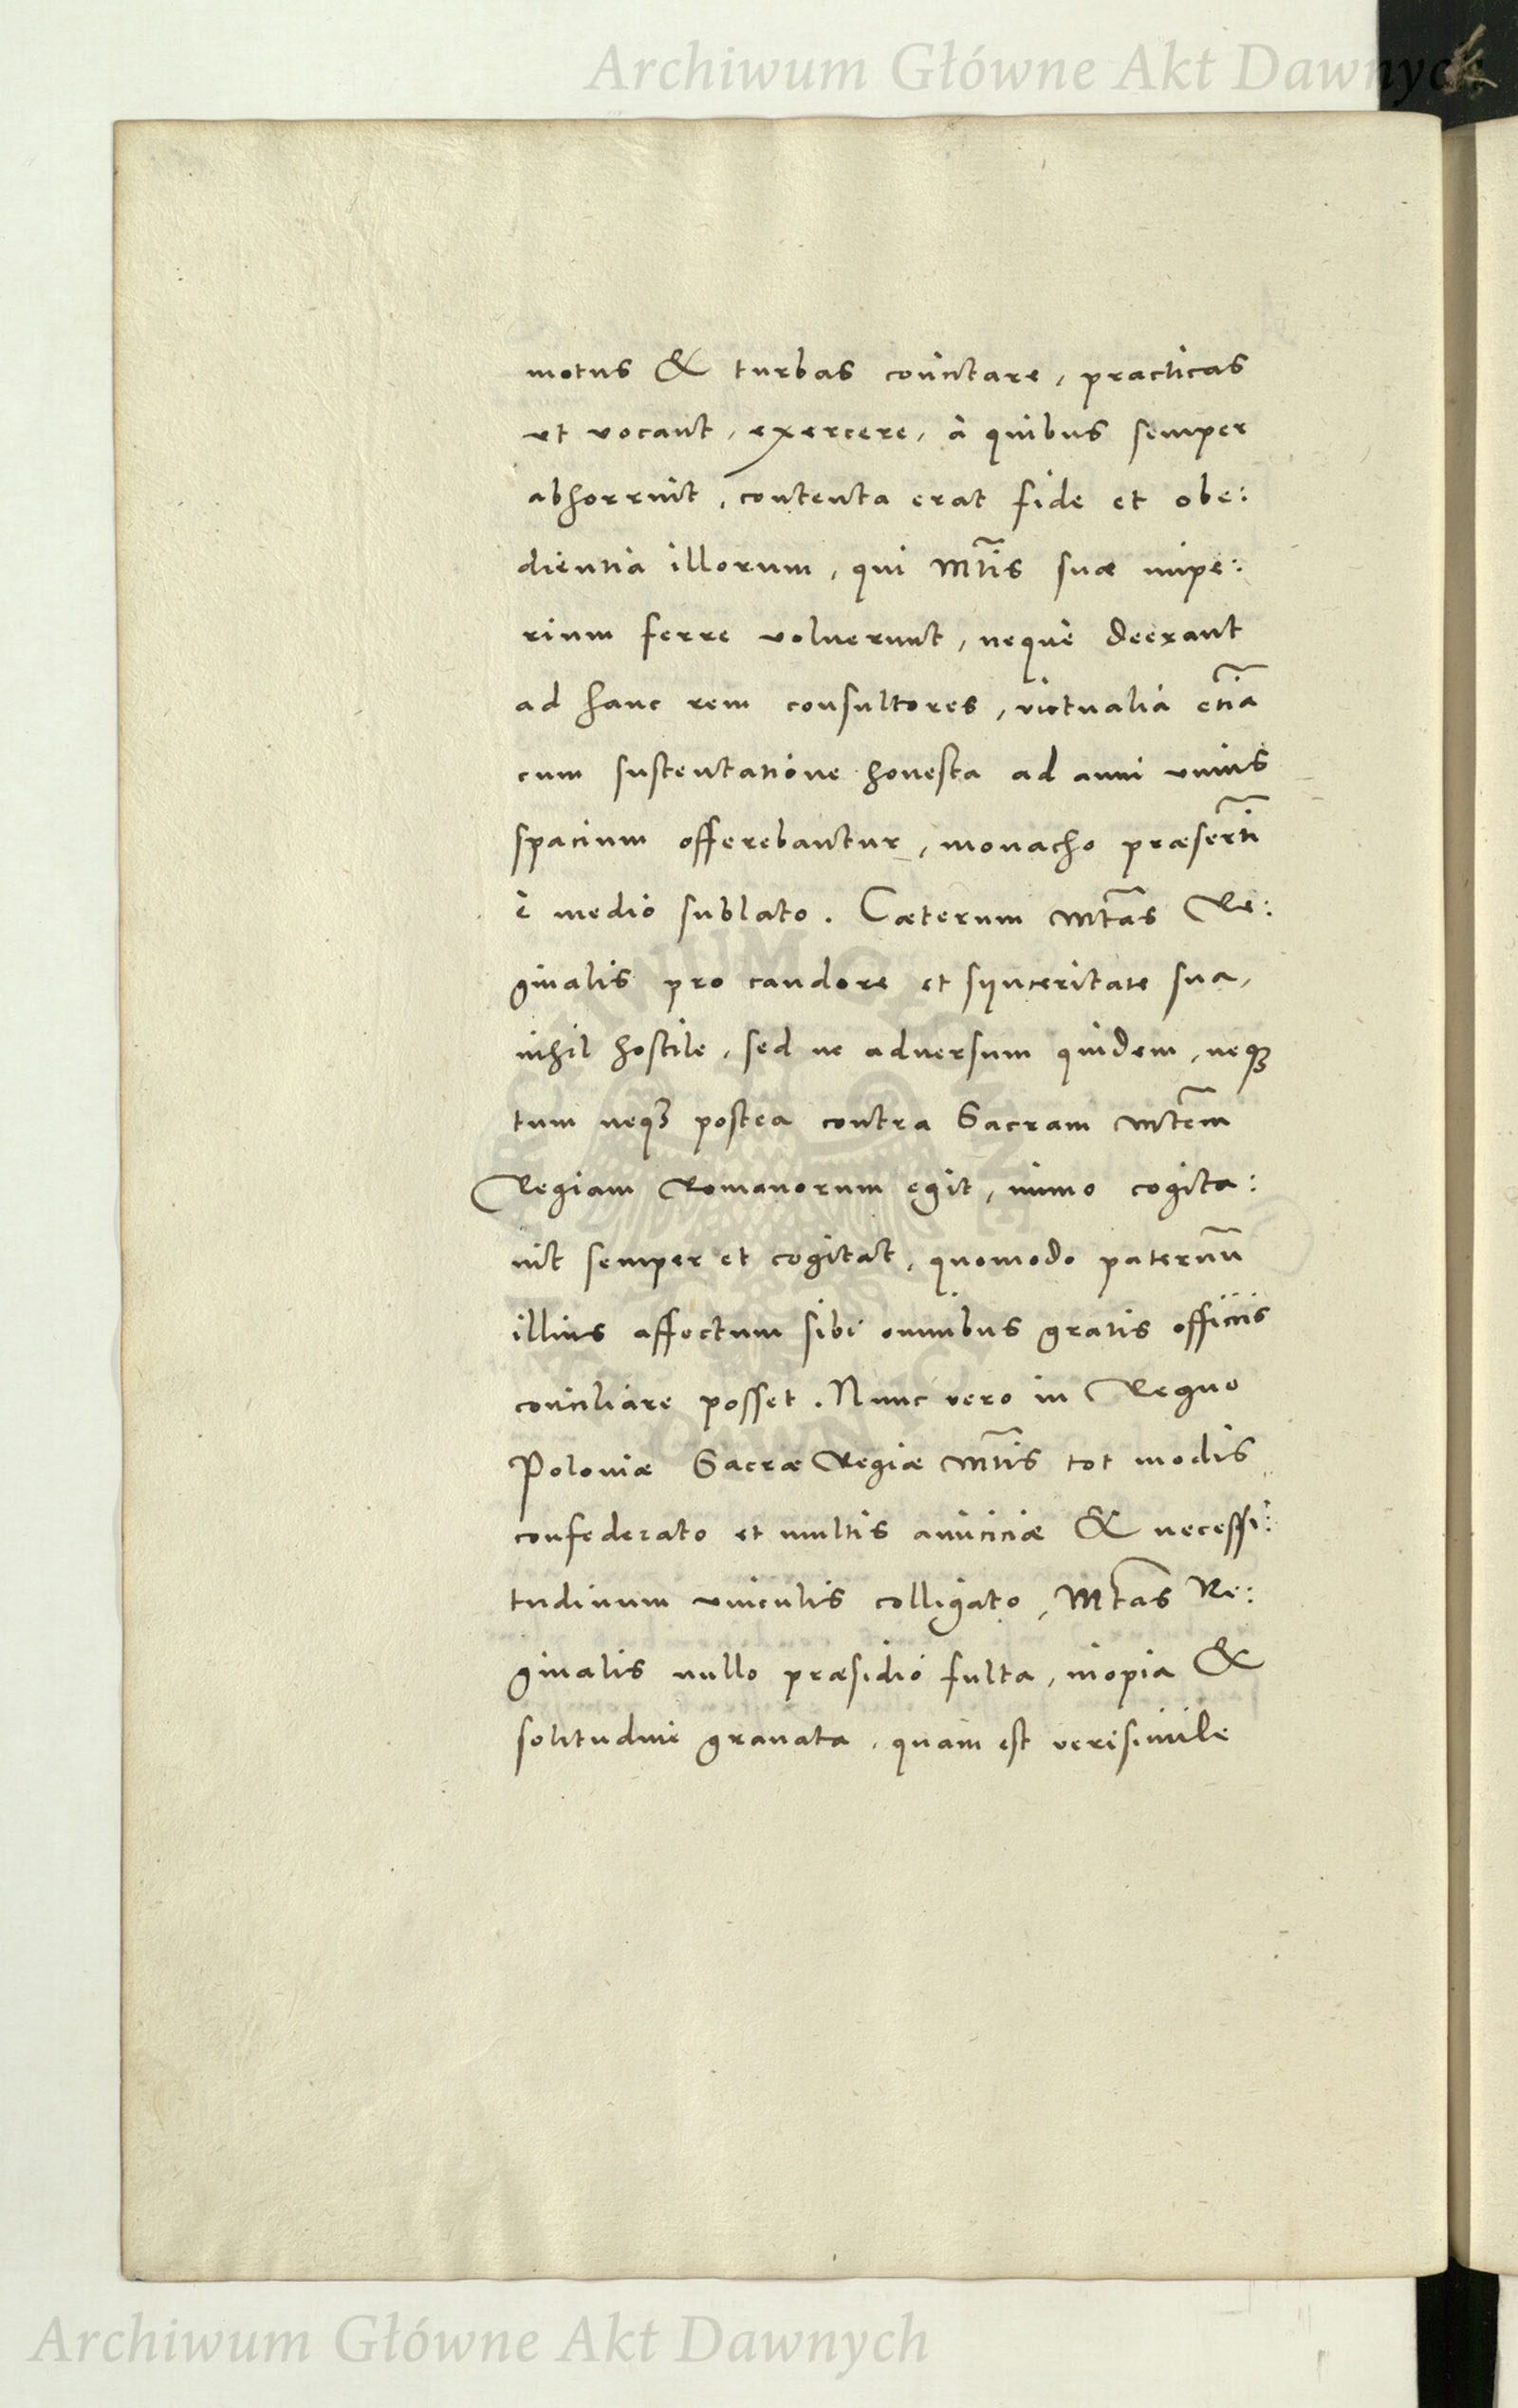 Archiwum Główne Akt Dawnych
motus & turbas concitare, practicas
ut vocant, exercere, à quibus semper
abhorruit, contenta erat fide et obe:
dientia illorum, qui Mtis suæ impe:
rium ferre voluerunt, neque deerant
ad hanc rem consultores, victualia etiā
cum sustentatione honesta ad anni unius
spacium offerebantur, monacho præsertī
è medio sublato. Cæterum Mtas Re:
ginalis pro candore et synceritate sua,
nihil hostile, sed ne adversum quidem, neqꝫ
tum neqꝫ postea contra Sacram Mtem
Regiam Romanorum egit, immo cogita:
uit semper et cogitat, quomodo paternū
illius affectum sibi omnibus gratis officiis
conciliare posset. Nunc vero in Regno
Poloniæ Sacræ Regiæ Mtis tot modis
confederato et multis amiciciæ & necessi:
tudinum vinculis colligato, Mtas Re:
ginalis nullo præsidio fulta, inopia &
solitudine grauata, quam est verisimile
Archiwum Główne Akt Dawnych